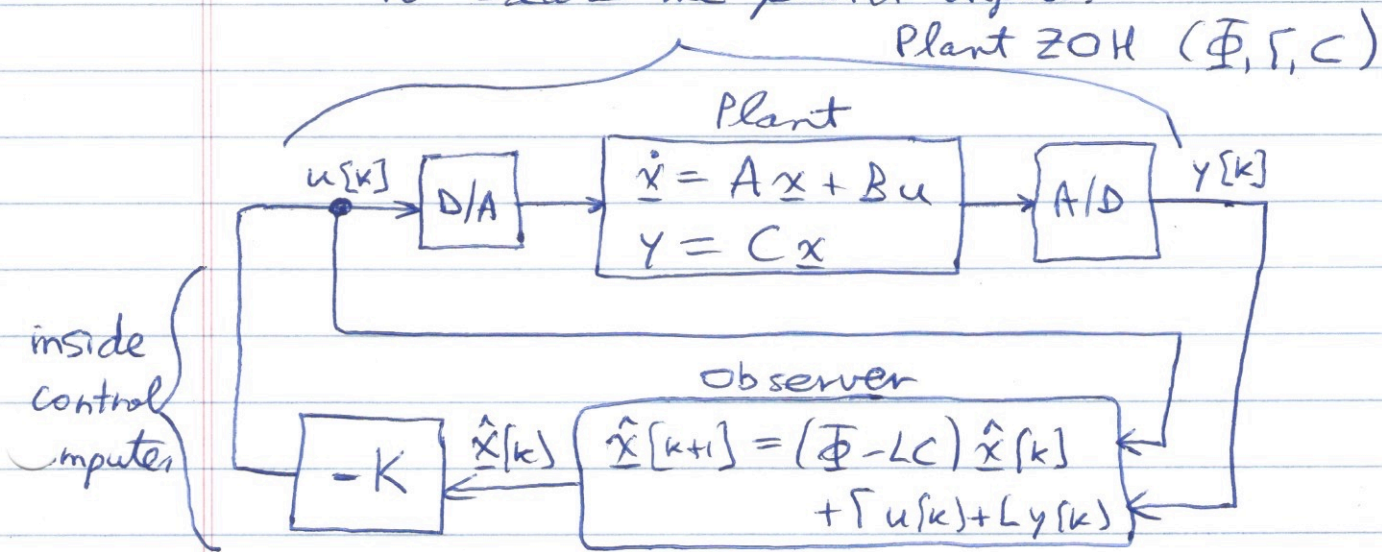 Plant ZOH (Φ, Γ, C)
Plant
u[k]
D/A
ẋ = A x + B u
y = C x
A/D
y[k]
inside
control
mputer
Observer
-K
x̂[k]
x̂[k+1] = (Φ-LC) x̂[k]
+Γu[k]+Ly[k]